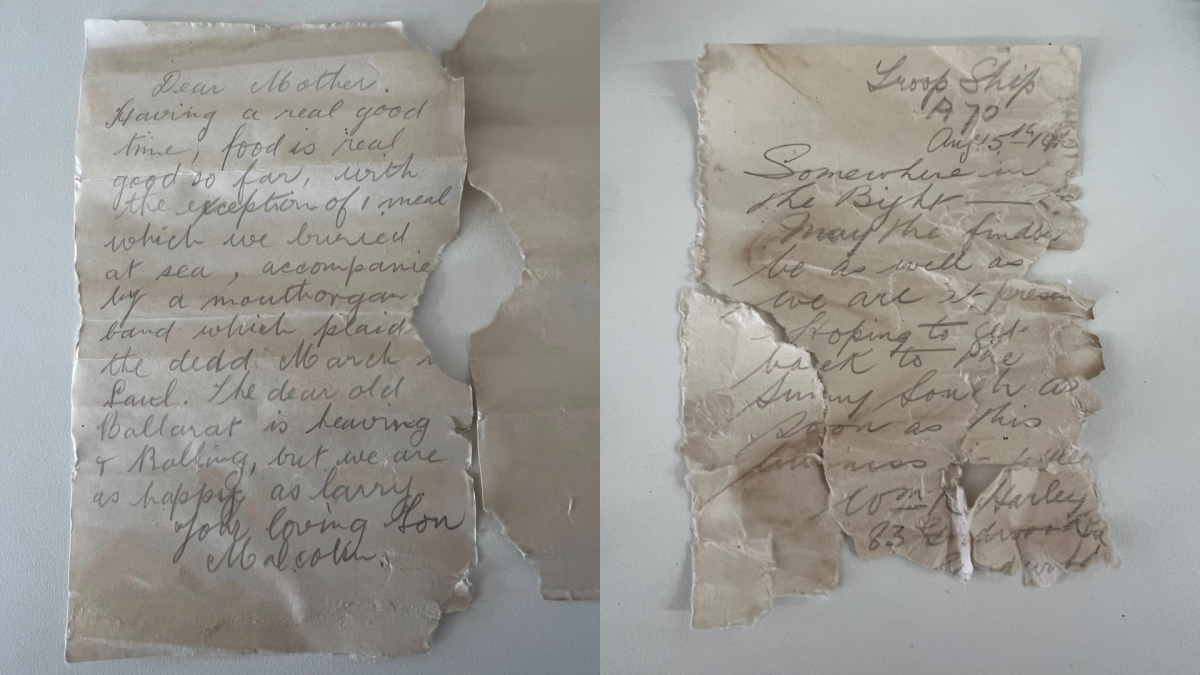 Dear Mother.
Having a real good
time, food is real
good so far, with
the exception of 1 meal
which we buried
at sea, accompanie
by a mouthorgan
band which plaid
the dedd March
Saul. The dear old
Ballarat is heaving
& Rolling, but we are
as happy as larry.
Your loving Son
Malcolm.
Troop Ship
A 70
Aug 15th
Somewhere in
the Bight —
May the finder
be as well as
we are at presen
Hoping to get
back to the
Sunny South as
soon as this
Harley
83